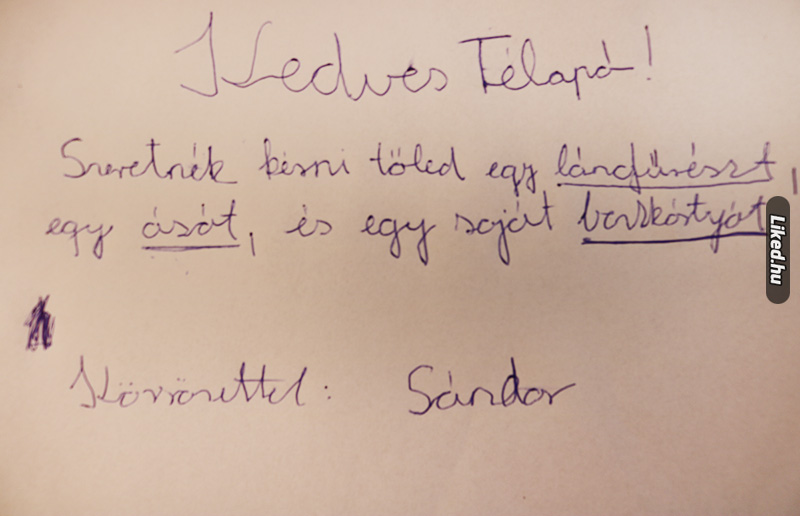 Kedves Télapó!
Szeretnék kérni tőled egy láncfűrészt,
egy ásót, és egy saját barkácstyát
Köszönettel: Sándor
Liked.hu